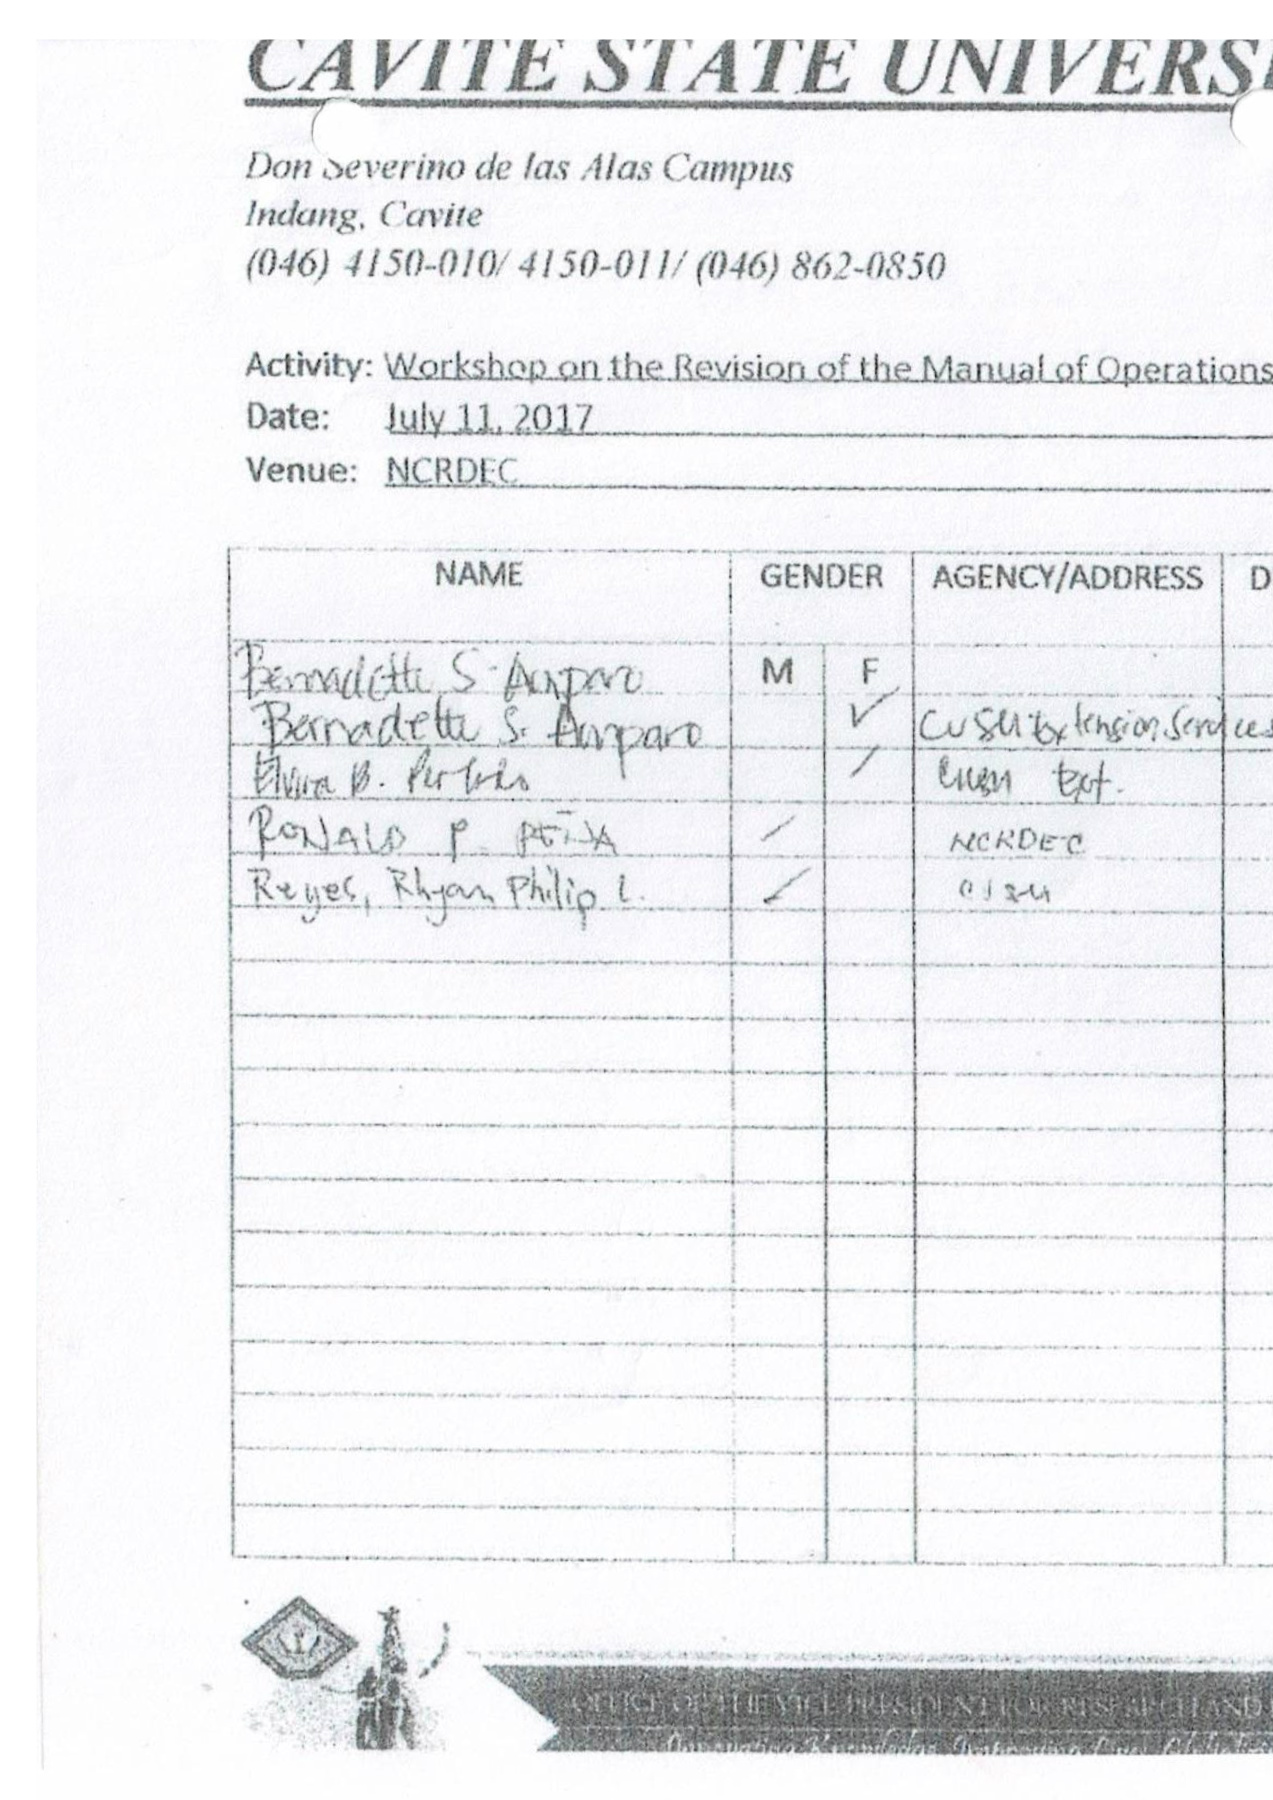 CAVITE STATE UNIVERSI
Don Severino de las Alas Campus
Indang, Cavite
(046) 4150-010/ 4150-011/ (046) 862-0850
Activity: Workshop on the Revision of the Manual of Operations
Date: July 11, 2017
Venue: NCRDEC
NAME GENDER AGENCY/ADDRESS D
Bernadette S. Amparo M F
Bernadette S. Amparo ✓ CvSU Extension Services
Elvira B. / CvSU Ext.
RONALD P. PEÑA / NCRDEC
Reyes, Rhyan Philip L. ✓ CvSU
OFFICE OF THE VICE PRESIDENT FOR RESEARCH AND